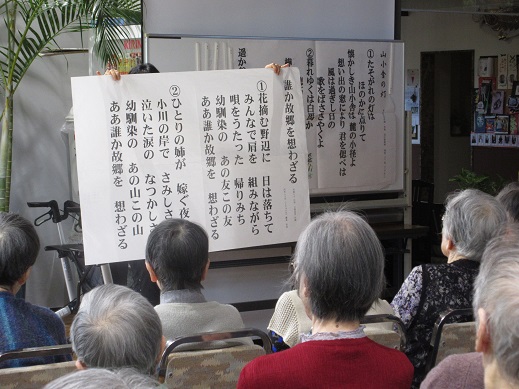 誰か故郷を想わざる
①花摘む野辺に 日は落ちて
みんなで肩を 組みながら
唄をうたった 帰りみち
幼馴染の あの友この友
ああ誰か故郷を 想わざる
②ひとりの姉が 嫁ぐ夜に
小川の岸で さみしさに
泣いた涙の なつかしさ
幼馴染の あの山この山
ああ誰か故郷を 想わざる
山小舎の灯
①たそがれの灯は
ほのかに点りて
懐かしき山小舎は 麓の小径よ
想い出の窓により 君を偲べば
風は過ぎし日の
歌をばささやくよ
②暮れゆくは白